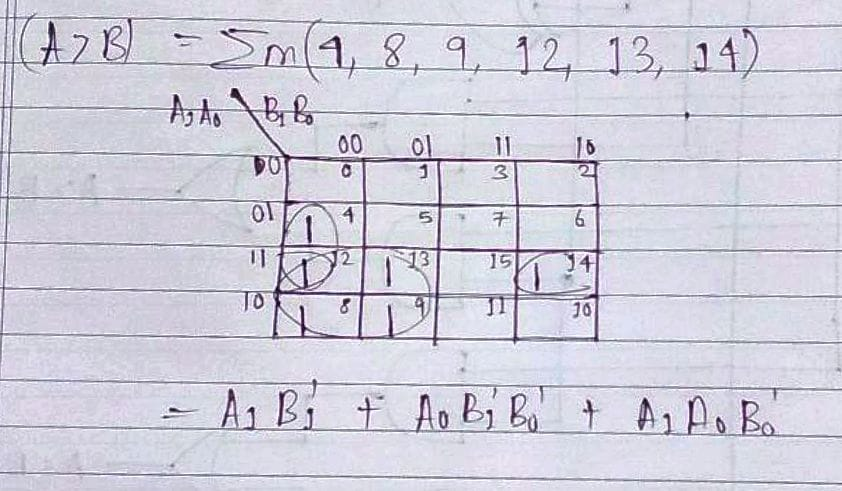 (A>B) = Σm(4, 8, 9, 12, 13, 14)
A1A0 B1B0
00 01 11 10
00 0 1 3 2
01 1 4 5 7 6
11 1 12 1 13 15 1 14
10 1 8 1 9 11 10
= A1 B1' + A0 B1' B0' + A1 A0 B0'